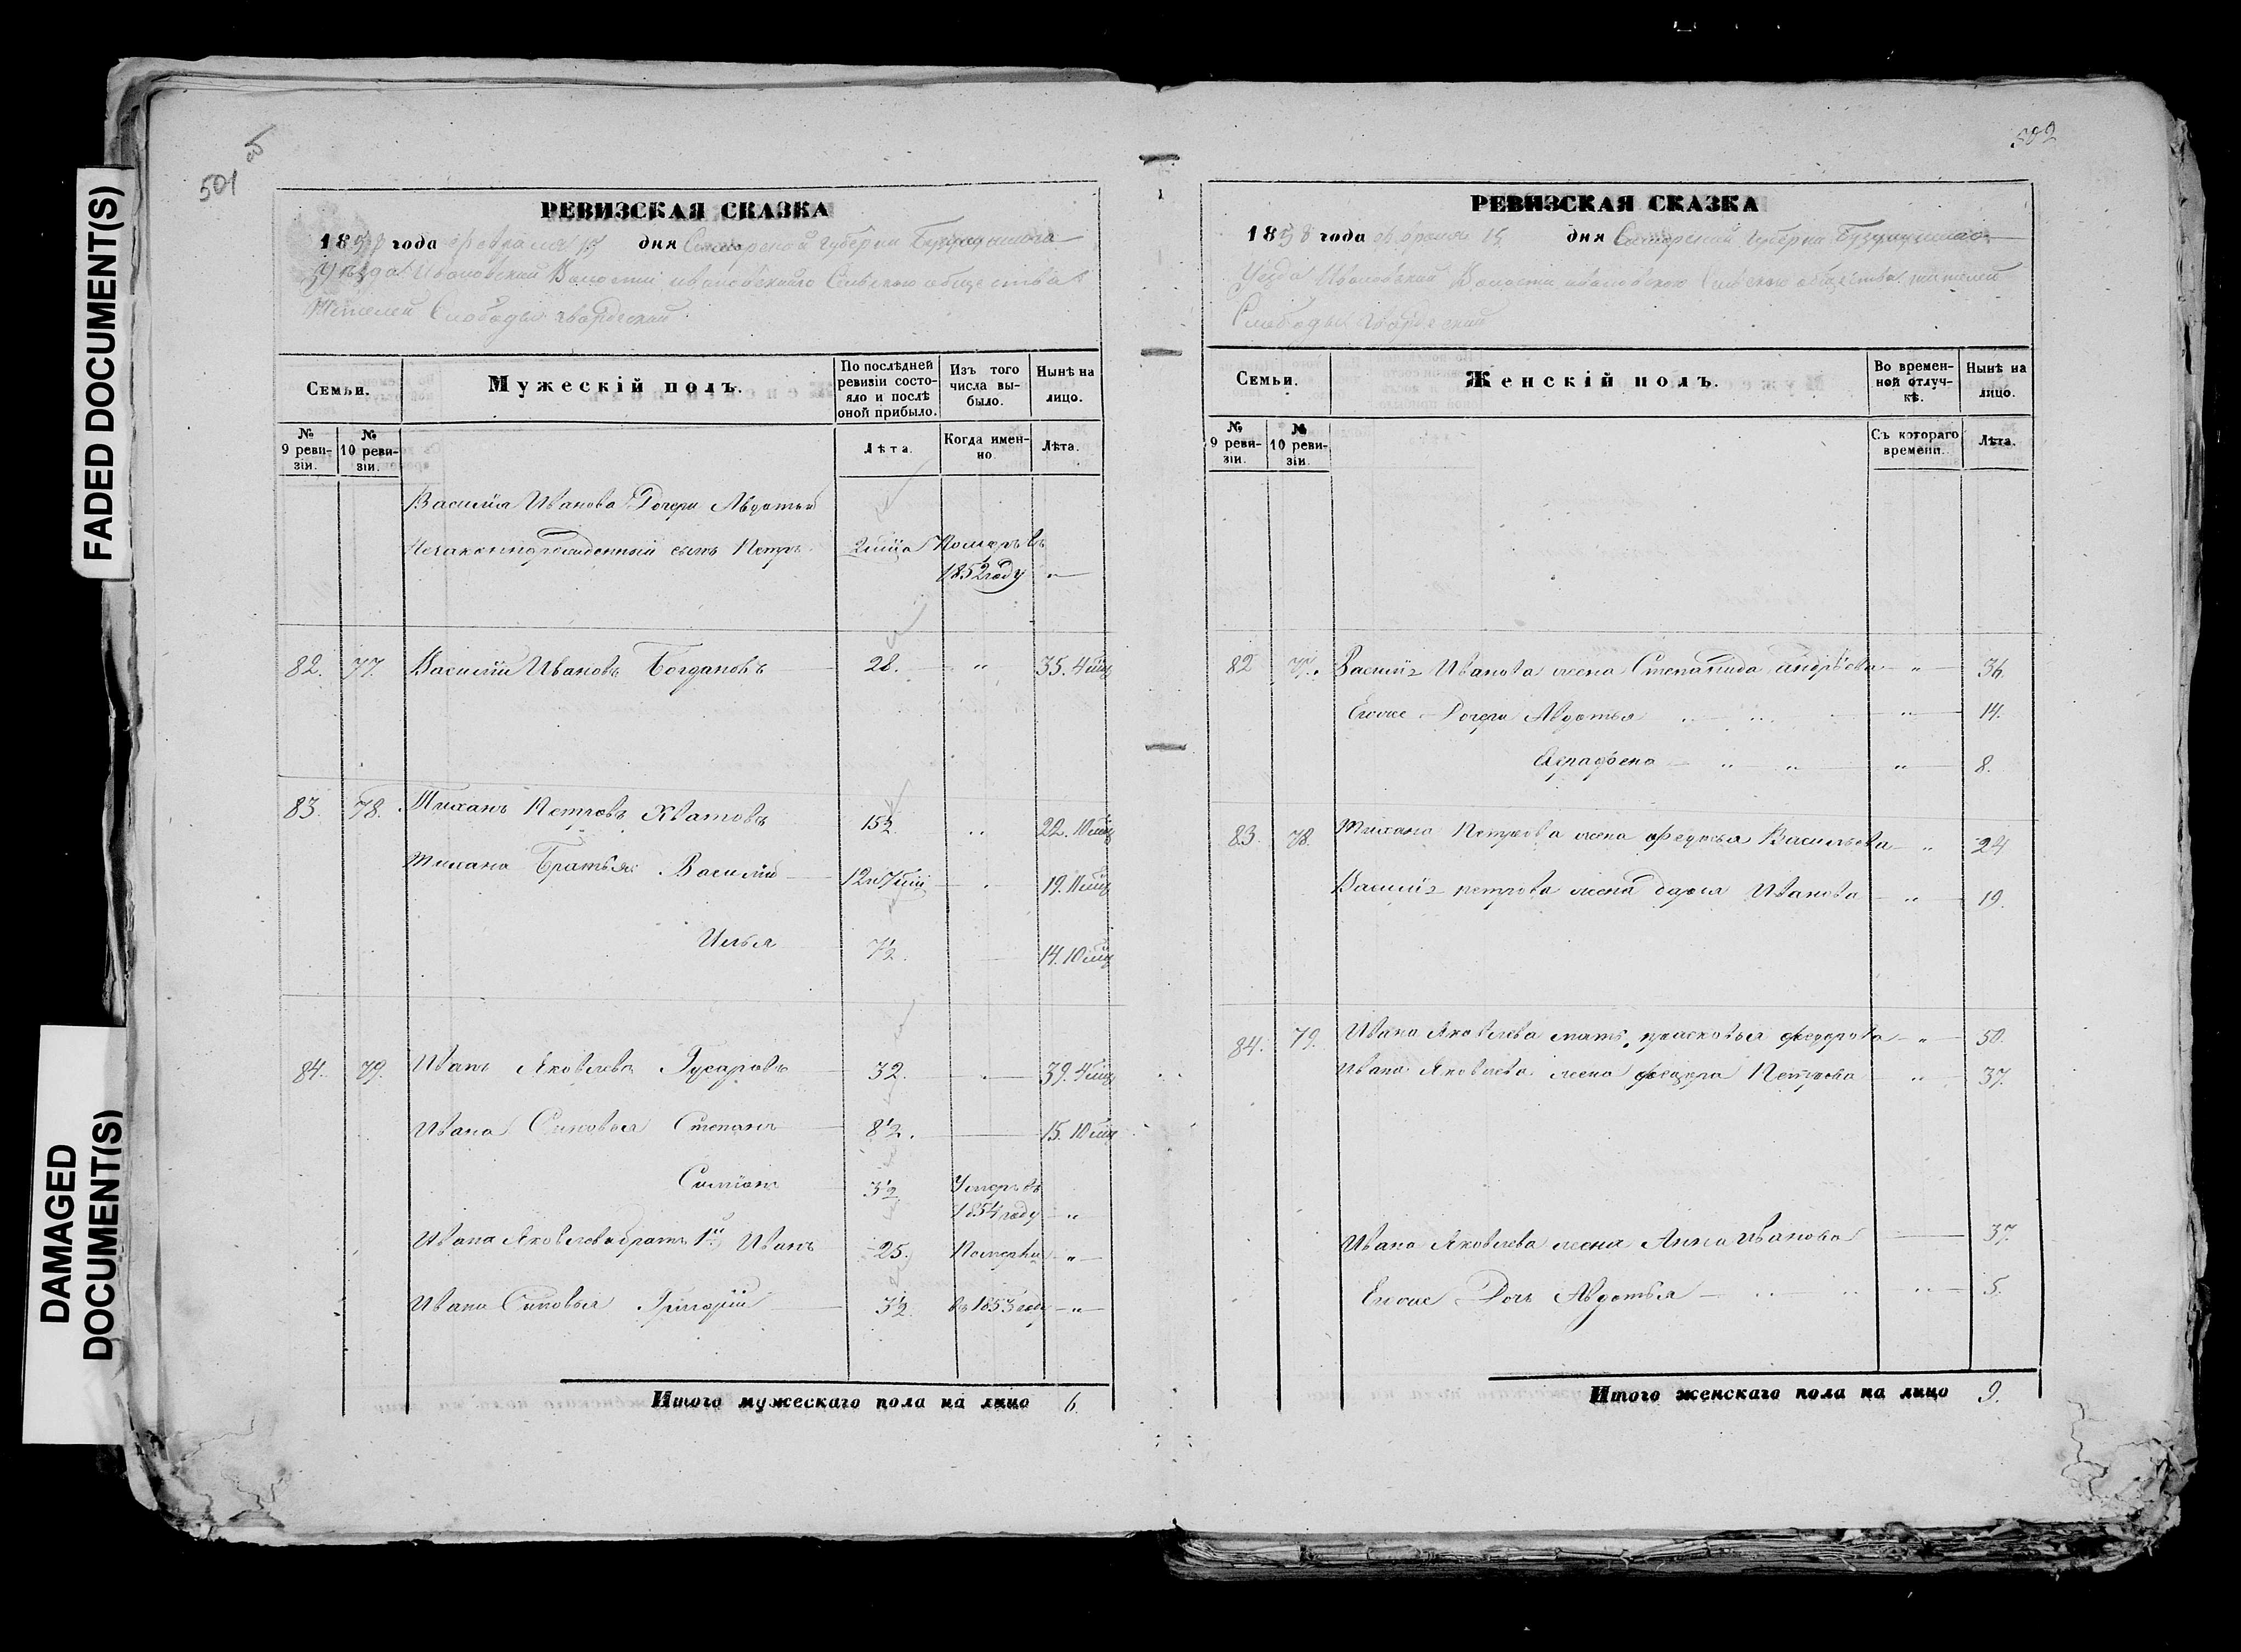 FADED DOCUMENT(S)
DAMAGED
DOCUMENT(S)
501
об
РЕВИЗСКАЯ СКАЗКА
1858 года февраля 15 дня Самарской губерни Бузулукскаго
Уѣзда Ивановской Волости ивановскаго Сельскаго общества
Жителей Слободы гвардеской
Семьи.
Мужескій полъ.
По послѣдней
ревизіи состо-
яло и послѣ
оной прибыло.
Изъ того
числа вы-
было.
Нынѣ на
лицо.
№
9 реви-
зіи.
№
10 реви-
зіи.
Лѣта.
Когда имен-
но.
Лѣта.
Василія Иванова Дочери Авдотьи
Незаконнорожденный сынъ Петръ 2 мца Померъ въ
1852 году "
82. 77. Василій Ивановъ Богдановъ 28. " 35. 4 мц
83. 78. Тиханъ Петровъ Хватовъ 15½ " 22. 10 мц
Тихана Братья Василій 12 и 7 мц 19. 11 мц
Илья 7½. 14. 10 мц
84. 79. Иванъ Яковлевъ Гусаровъ 32. 39. 4 мц
Ивана Синовья Степанъ 8½. 15. 10 мц
Симіонъ 3½ Умеръ въ
1854 году "
Ивана Яковлева братъ 1й Иванъ 25. Померъ "
Ивана Синовья Григорій 3½. въ 1853 году "
Итого мужескаго пола на лицо 6.
502
РЕВИЗСКАЯ СКАЗКА
1858 года февраля 15 дня Самарской губерни Бузулукскаго
Уезда Ивановской Волости ивановского Сельского общества жителей
Слободы гвардеский
Семьи.
Женскій полъ.
Во времен-
ной отлуч-
кѣ.
Нынѣ на
лицо.
№
9 реви-
зіи.
№
10 реви-
зіи.
Съ котораго
времени.
Лѣта.
82 77. Василія Иванова жена Степанида андрѣева " 36.
Евоже Дочери Авдотья " 14.
Аграфена " 8.
83. 78. Тихана Петрова жена федосья Васильева " 24
Василія петрова жена дарья Иванова " 19.
84. 79. Ивана Яковлева мать, прасковья федорова " 50.
Ивана Яковлева жена федора Петрова " 37.
Ивана Яковлева жена Анна Иванова 37.
Евоже Дочь Авдотья " 5.
Итого женскаго пола на лицо 9.